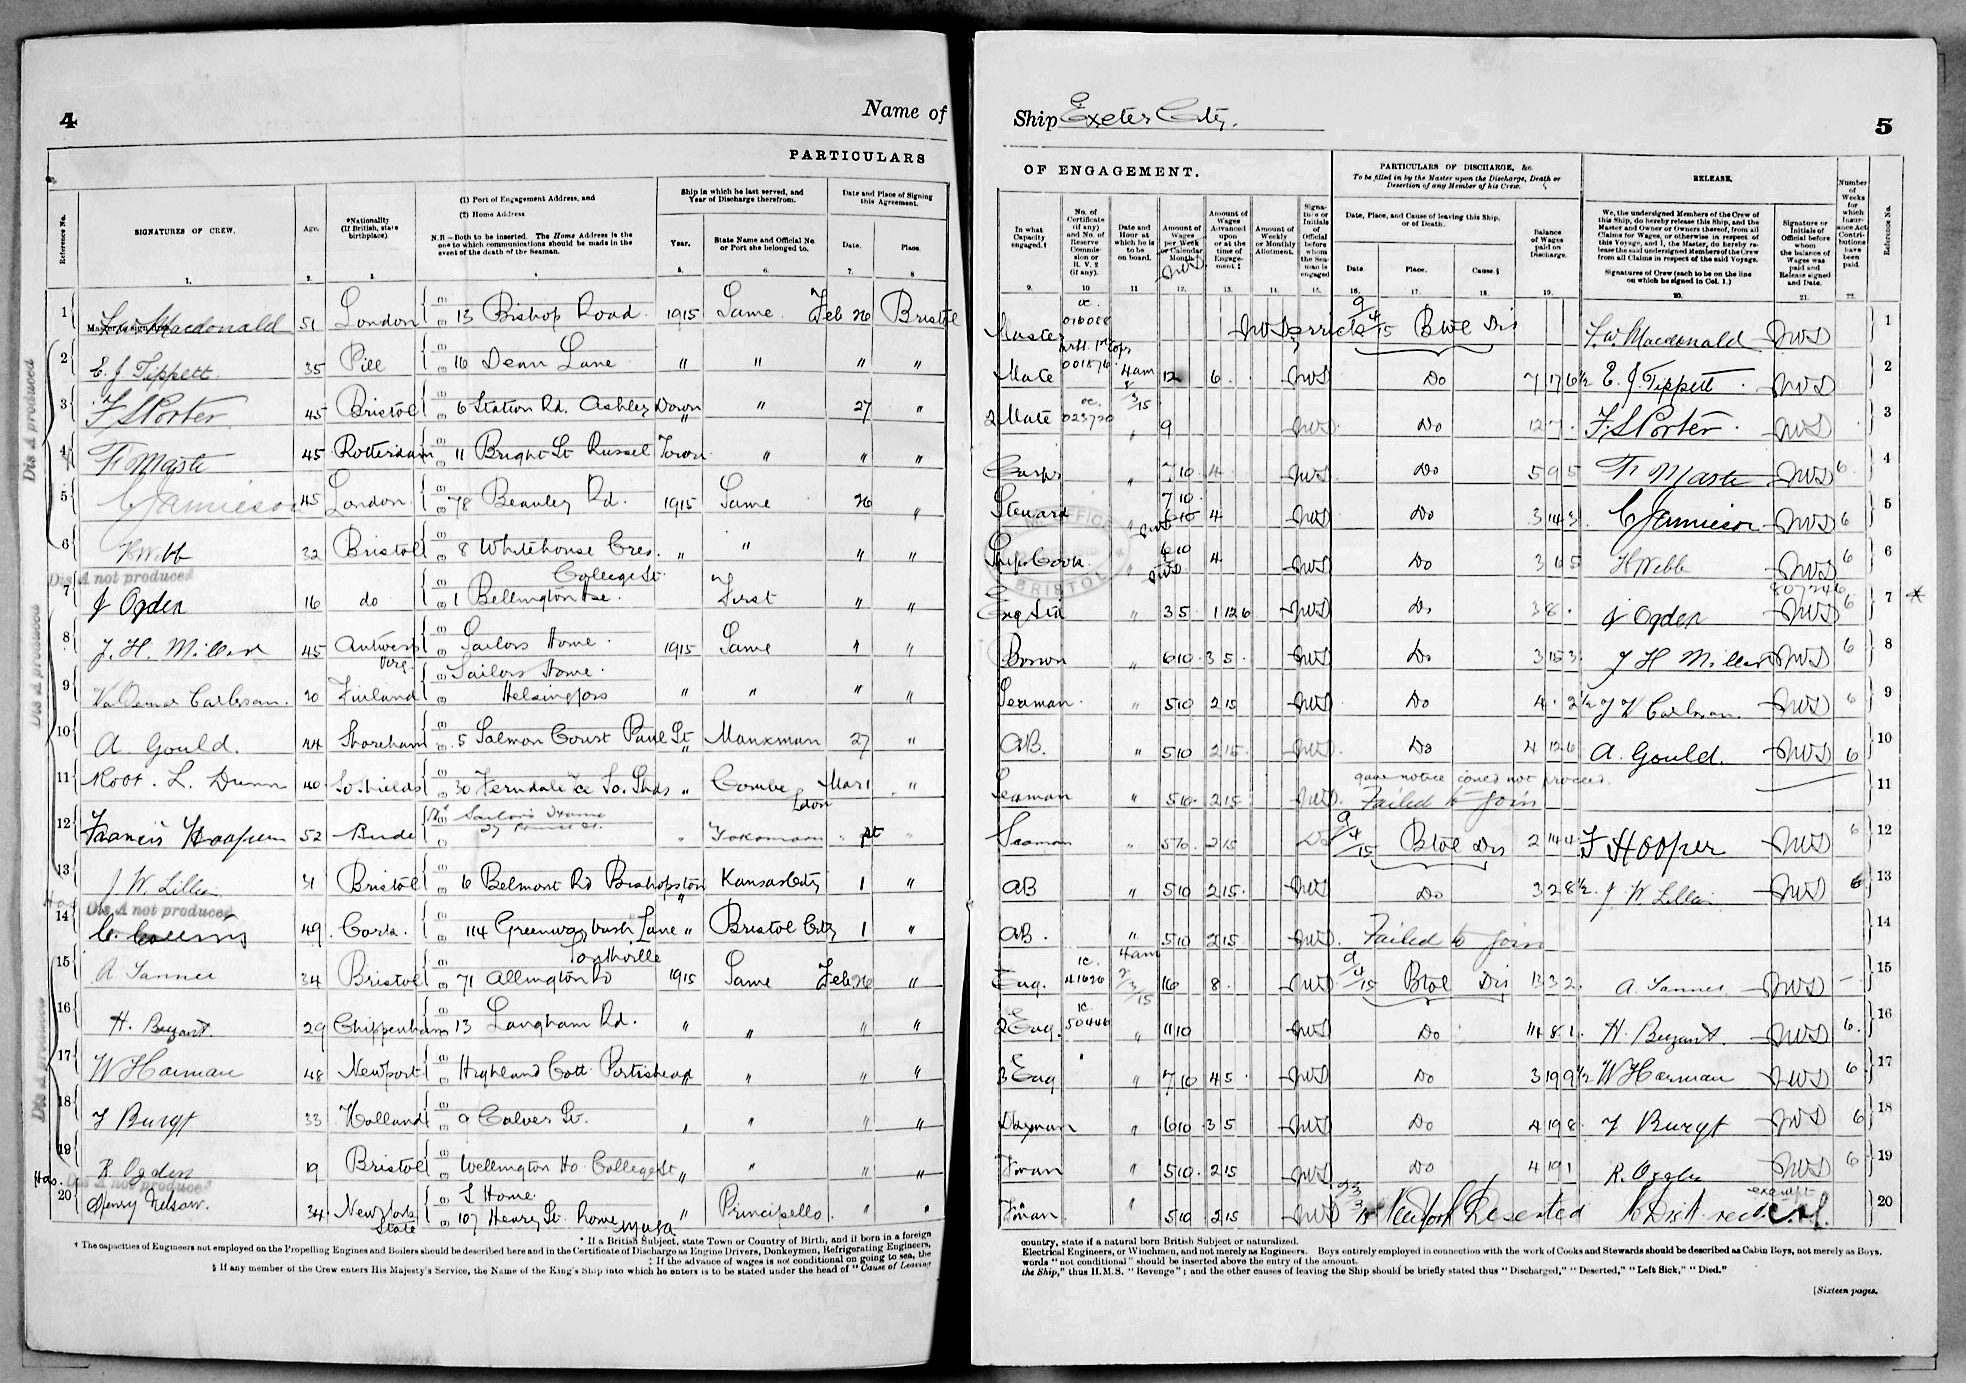 4
Name of
PARTICULARS
Reference No.
SIGNATURES OF CREW.
Age.
*Nationality (If British, state birthplace).
(1) Port of Engagement Address, and
(2) Home Address
N.B—Both to be inserted. The Home Address is the one to which communications should be made in the event of the death of the Seaman.
Ship in which he last served, and Year of Discharge therefrom.
Year.
State Name and Official No. or Port she belonged to.
Date and Place of Signing this Agreement.
Date.
Place.
1. 2. 3. 4. 5. 6. 7. 8
1 Master to sign first Macdonald 51 London 13 Bishop Road 1915 Same Feb 26 Bristol
2 E. J Tippett. 35 Pill 16 Dean Lane " " " "
3 F S Porter 45 Bristol 6 Station Rd. Ashley Down " " 27 "
4 45 Rotterdam 11 Bright St Russel Town " " "
5 C Jamieson 45 London 78 Beauley Rd. 1915 Same 26 "
6 H Webb 32 Bristol 8 Whitehouse Cres. " " " "
Dis A not produced
7 J Ogden 16 do College St 1 Bellington Tce. First " "
8 J. H. Miller 45 Antwerp Sailors Home. 1915 Same " "
9 Carlsson. 20 Finland Sailors Home. Helsingfors " " " "
10 A. Gould. 44 Shoreham 5 Salmon Court Paul St " Manxman 27 "
11 Robt. L. Dunn 40 So Shields 30 Ferndale Tce So. Shds " Combe Mar 1 "
12 Francis Hooper 52 Bude Sailors Home "
13 J. W. Lillie 31 Bristol 6 Belmont Rd Bishopston " Kansas City 1 "
Dis A not produced
14 C. Collins 49 Cork. 114 Greenway bush Lane " Bristol City 1 "
15 A Tanner 34 Bristol 71 Allington Rd Southville 1915 Same Feb 26 "
16 H. Bryant 29 Chippenham 13 Langham Rd. " " " "
17 W Harman 48 Newport Highland Cott Portishead " " " "
18 33 Holland 9 Calver St. " " " "
19 R. Ogden 19 Bristol Wellington Ho College St " " " "
Dis A not produced
20 Henry Nelson. 34 New York State S Home. 107 Henry St. Rome " Principello. " "
Dis A produced
Dis A produced
Dis A produced
* If a British Subject, state Town or Country of Birth, and if born in a foreign
† The capacities of Engineers not employed on the Propelling Engines and Boilers should be described here and in the Certificate of Discharge as Engine Drivers, Donkeymen, Refrigerating Engineers,
‡ If the advance of wages is not conditional on going to sea, the
§ If any member of the Crew enters His Majesty's Service, the Name of the King's Ship into which he enters is to be stated under the head of "Cause of Leaving
Ship Exeter City.
5
OF ENGAGEMENT.
PARTICULARS OF DISCHARGE, &c.
To be filled in by the Master upon the Discharge, Death or Desertion of any Member of his Crew.
RELEASE.
In what Capacity engaged.†
No. of Certificate (if any) and No. of Reserve Commission or R. V. 2 (if any).
Date and Hour at which he is to be on board.
Amount of Wages per Week or Calendar Month.
Amount of Wages Advanced upon or at the time of Engagement.‡
Amount of Weekly or Monthly Allotment.
Signature or Initials of Official before whom the Seaman is engaged
Date, Place, and Cause of leaving this Ship, or of Death.
Date
Place.
Cause.§
Balance of Wages paid on Discharge.
We, the undersigned Members of the Crew of this Ship, do hereby release this Ship, and the Master and Owner or Owners thereof, from all Claims for Wages, or otherwise in respect of this Voyage, and I, the Master, do hereby release the said undersigned Members of the Crew from all Claims in respect of the said Voyage.
Signatures of Crew (each to be on the line on which he signed in Col. 1.)
Signature or Initials of Official before whom the balance of Wages was paid and Release signed and Date.
Number of Weeks for which Insurance Act Contributions have been paid.
Reference No.
9. 10 11 12. 13. 14. 15. 16. 17. 18. 19. 20. 21. 22.
Master oc. 9/4/15 Btol Dis F. W Macdonald JWS 1
Mate 001876 4am 12 6 JWS Do 7 17 6½ E. J. Tippett JWS 2
2 Mate oc. 023720 " 9 JWS Do 12 7 F. S Porter JWS 3
Carp " 7 10 4 JWS Do 5 9 5 JWS 6 4
Steward " 7 10 4 JWS Do 3 14 3 C Jamieson JWS 6 5
Ships Cook. " 6 10 4 JWS Do 3 6 5 H Webb JWS 6 6
" 3 5 1 12 6 JWS Do 3 8 J Ogden JWS 6 7
Bosun " 6 10 3 5 JWS Do 3 15 3 J H Miller JWS 6 8
Seaman. " 5 10 2 15 JWS Do 4 . 2½ Carlsson JWS 6 9
AB. " 5 10 2 15 JWS Do 4 12 6 A. Gould. JWS 6 10
Seaman " 5 10 2 15 JWS gave notice could not proceed. Failed to join 11
Seaman " 5 10 2 15 Do 9/4/15 Btol Dis 2 14 4 F Hooper JWS 6 12
AB " 5 10 2 15 JWS Do 3 2 8½ J W Lillie JWS 6 13
AB. " 5 10 2 15 JWS Failed to join 14
Eng. 1c. 41620 4am 2/3/15 16 8 JWS 9/4/15 Btol Dis 13 3 2 A Tanner JWS — 15
2 Eng. 1c 50446 " 11 10 JWS Do 14 8 1 H. Bryant. JWS 6 16
3 Eng " 7 10 4 5 JWS Do 3 19 9½ W Harman JWS 6 17
Dkyman " 6 10 3 5 JWS Do 4 19 8 JWS 6 18
Fman " 5 10 2 15 JWS Do 4 19 1 R. Ogden JWS 6 19
Fman. " 5 10 2 15 JWS New York Deserted No Dis A recd 20
BRISTOL
country, state if a natural born British Subject or naturalized.
Electrical Engineers, or Winchmen, and not merely as Engineers. Boys entirely employed in connection with the work of Cooks and Stewards should be described as Cabin Boys, not merely as Boys.
words "not conditional" should be inserted above the entry of the amount.
the Ship," thus H.M.S. "Revenge"; and the other causes of leaving the Ship should be briefly stated thus "Discharged," "Deserted," "Left Sick," "Died."
[Sixteen pages.